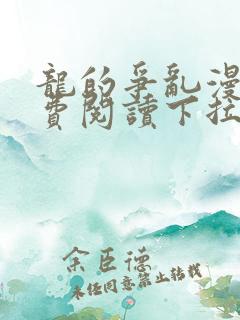 龍的爭亂漫
費閱讀下拉
余臣德
未經同意禁止轉載